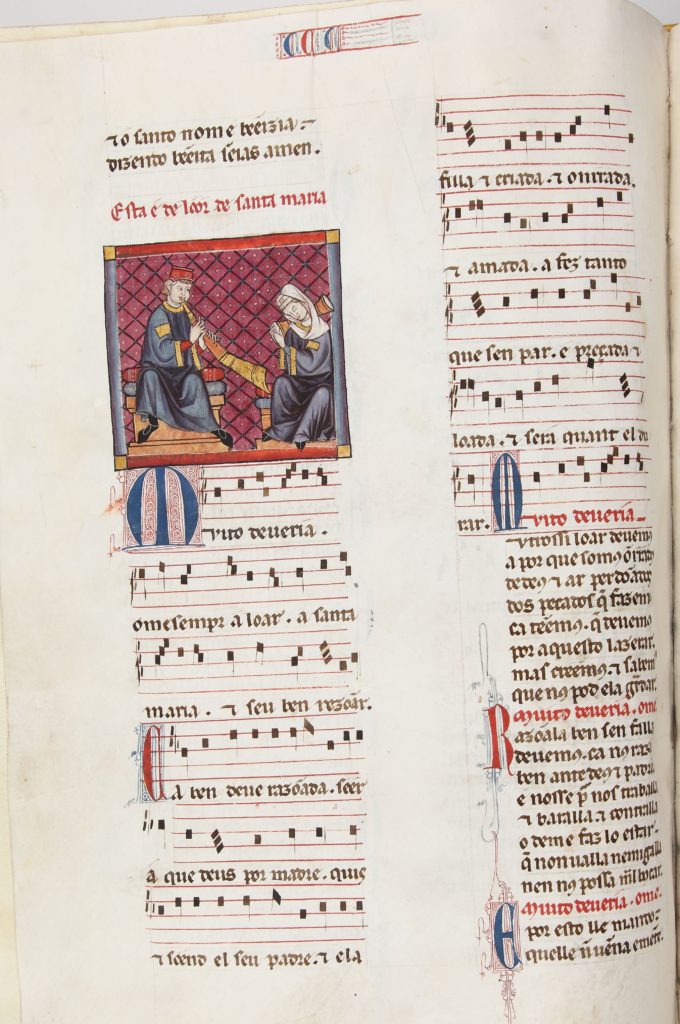 CCC
⁊ o santo nome bẽeizia. ⁊
dizendo bẽeita seias amen.
Esta e de loor de santa maria
Muito deueria.
ome sempr a loar. a santa
maria. ⁊ seu ben rezõar.
Ca ben deue razõada. seer
a que deus por madre. quis
⁊ seend el seu padre. ⁊ ela
filla ⁊ criada. ⁊ onrrada.
⁊ amada. a fez tanto
que sen par. e preçada ⁊
loada. ⁊ sera quant el du
rar. Muito deueria
loar deuemꝯ
a por que somꝯ
de deꝯ ⁊ ar perdõados
dos pecados q̃ fazem
ca tẽemꝯ. q̃ deuemꝯ
por aquesto lazerar.
mas creemꝯ. ⁊ sabem
que nꝯ pod ela gũrdar.
Muito deueria. ome
Razõala ben sen falla
deuemꝯ. ca nꝯ raz
ben ante deꝯ ⁊ padre
e nosse p̃ nos traballa
⁊ baralla ⁊ contralla
o deme faz lo estar.
q̃ non ualla nemigalla
nen nꝯ possa mal buscar.
Muito deueria. ome.
E por esto lle mando
quelle